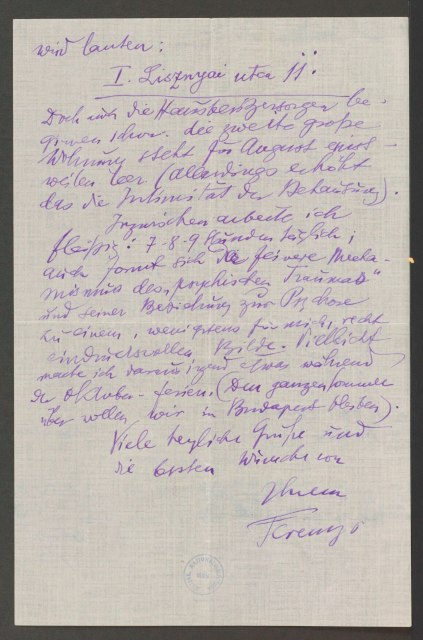 wird lauten:
I. Lisznyai utca 11.
Doch auch die Hausbesitzersorgen be-
ginnen schon. die zweite große
Wohnung steht für August einst-
weilen leer (Allerdings erhöht
das die Intimität der Behausung).
Inzwischen arbeite ich
fleißig: 7-8-9 Stunden täglich;
auch formt sich der feinere Mecha-
nismus des „psychischen Traumas"
und seiner Beziehung zur Psychose
zu einem, wenigstens für mich, recht
eindrucksvollen Bilde. Vielleicht
mache ich daraus irgend etwas während
der Oktober-ferien. (Den ganzen Sommer
über wollen wir in Budapest bleiben).
Viele herzliche Grüße und
die besten Wünsche von
Ihrem
Ferenczi